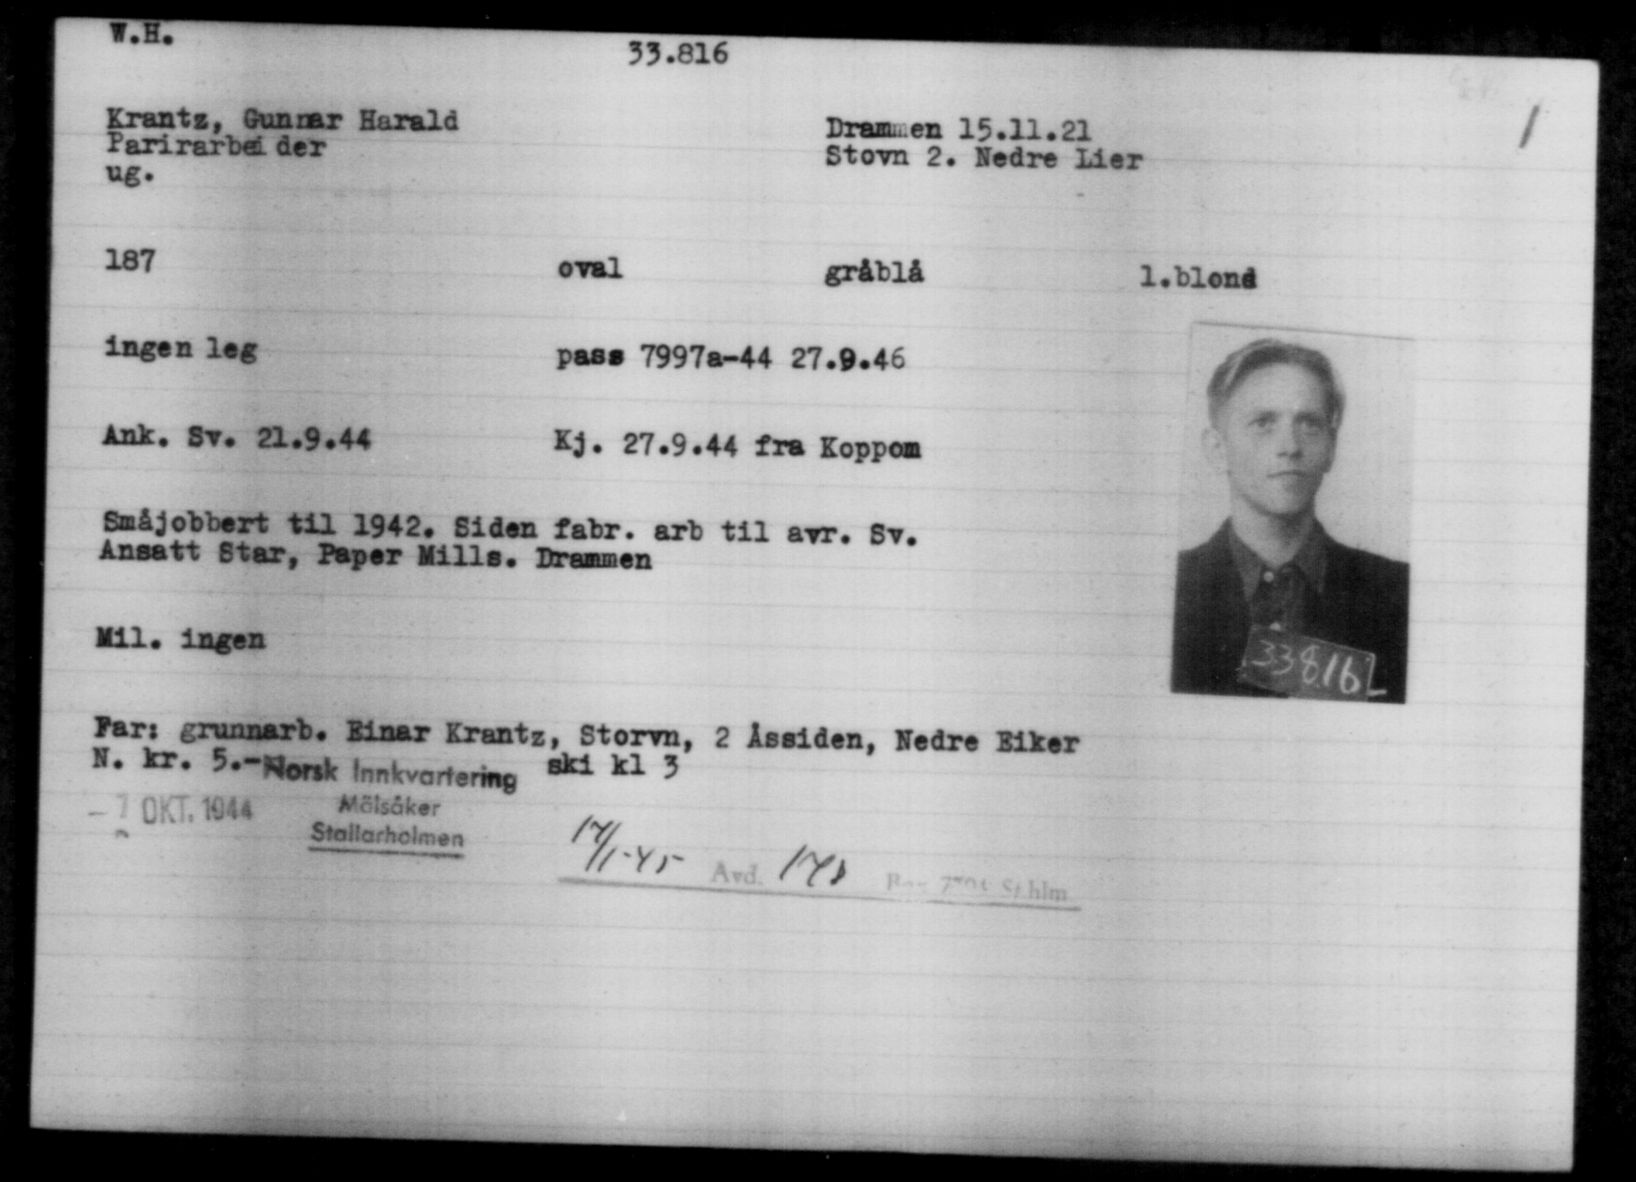 W.H.
33.816
Krantz, Gunnar Harald
Drammen 15.11.21
Parirarbei der
Stovn 2. Nedre Lier
ug.
187 oval gråblå l.blond
ingen leg pass 7997a-44 27.9.46
Ank. Sv. 21.9.44 Kj. 27.9.44 fra Koppom
Småjobbert til 1942. Siden fabr. arb til avr. Sv.
Ansatt Star, Paper Mills. Drammen
33816
Mil. ingen
Far: grunnarb. Einar Krantz, Storvn, 2 Åssiden, Nedre Eiker
N. kr. 5.- Norsk Innkvartering ski kl 3
OKT. 1944 Mälsåker
Stallarholmen
17/1-45 Avd. Sthlm